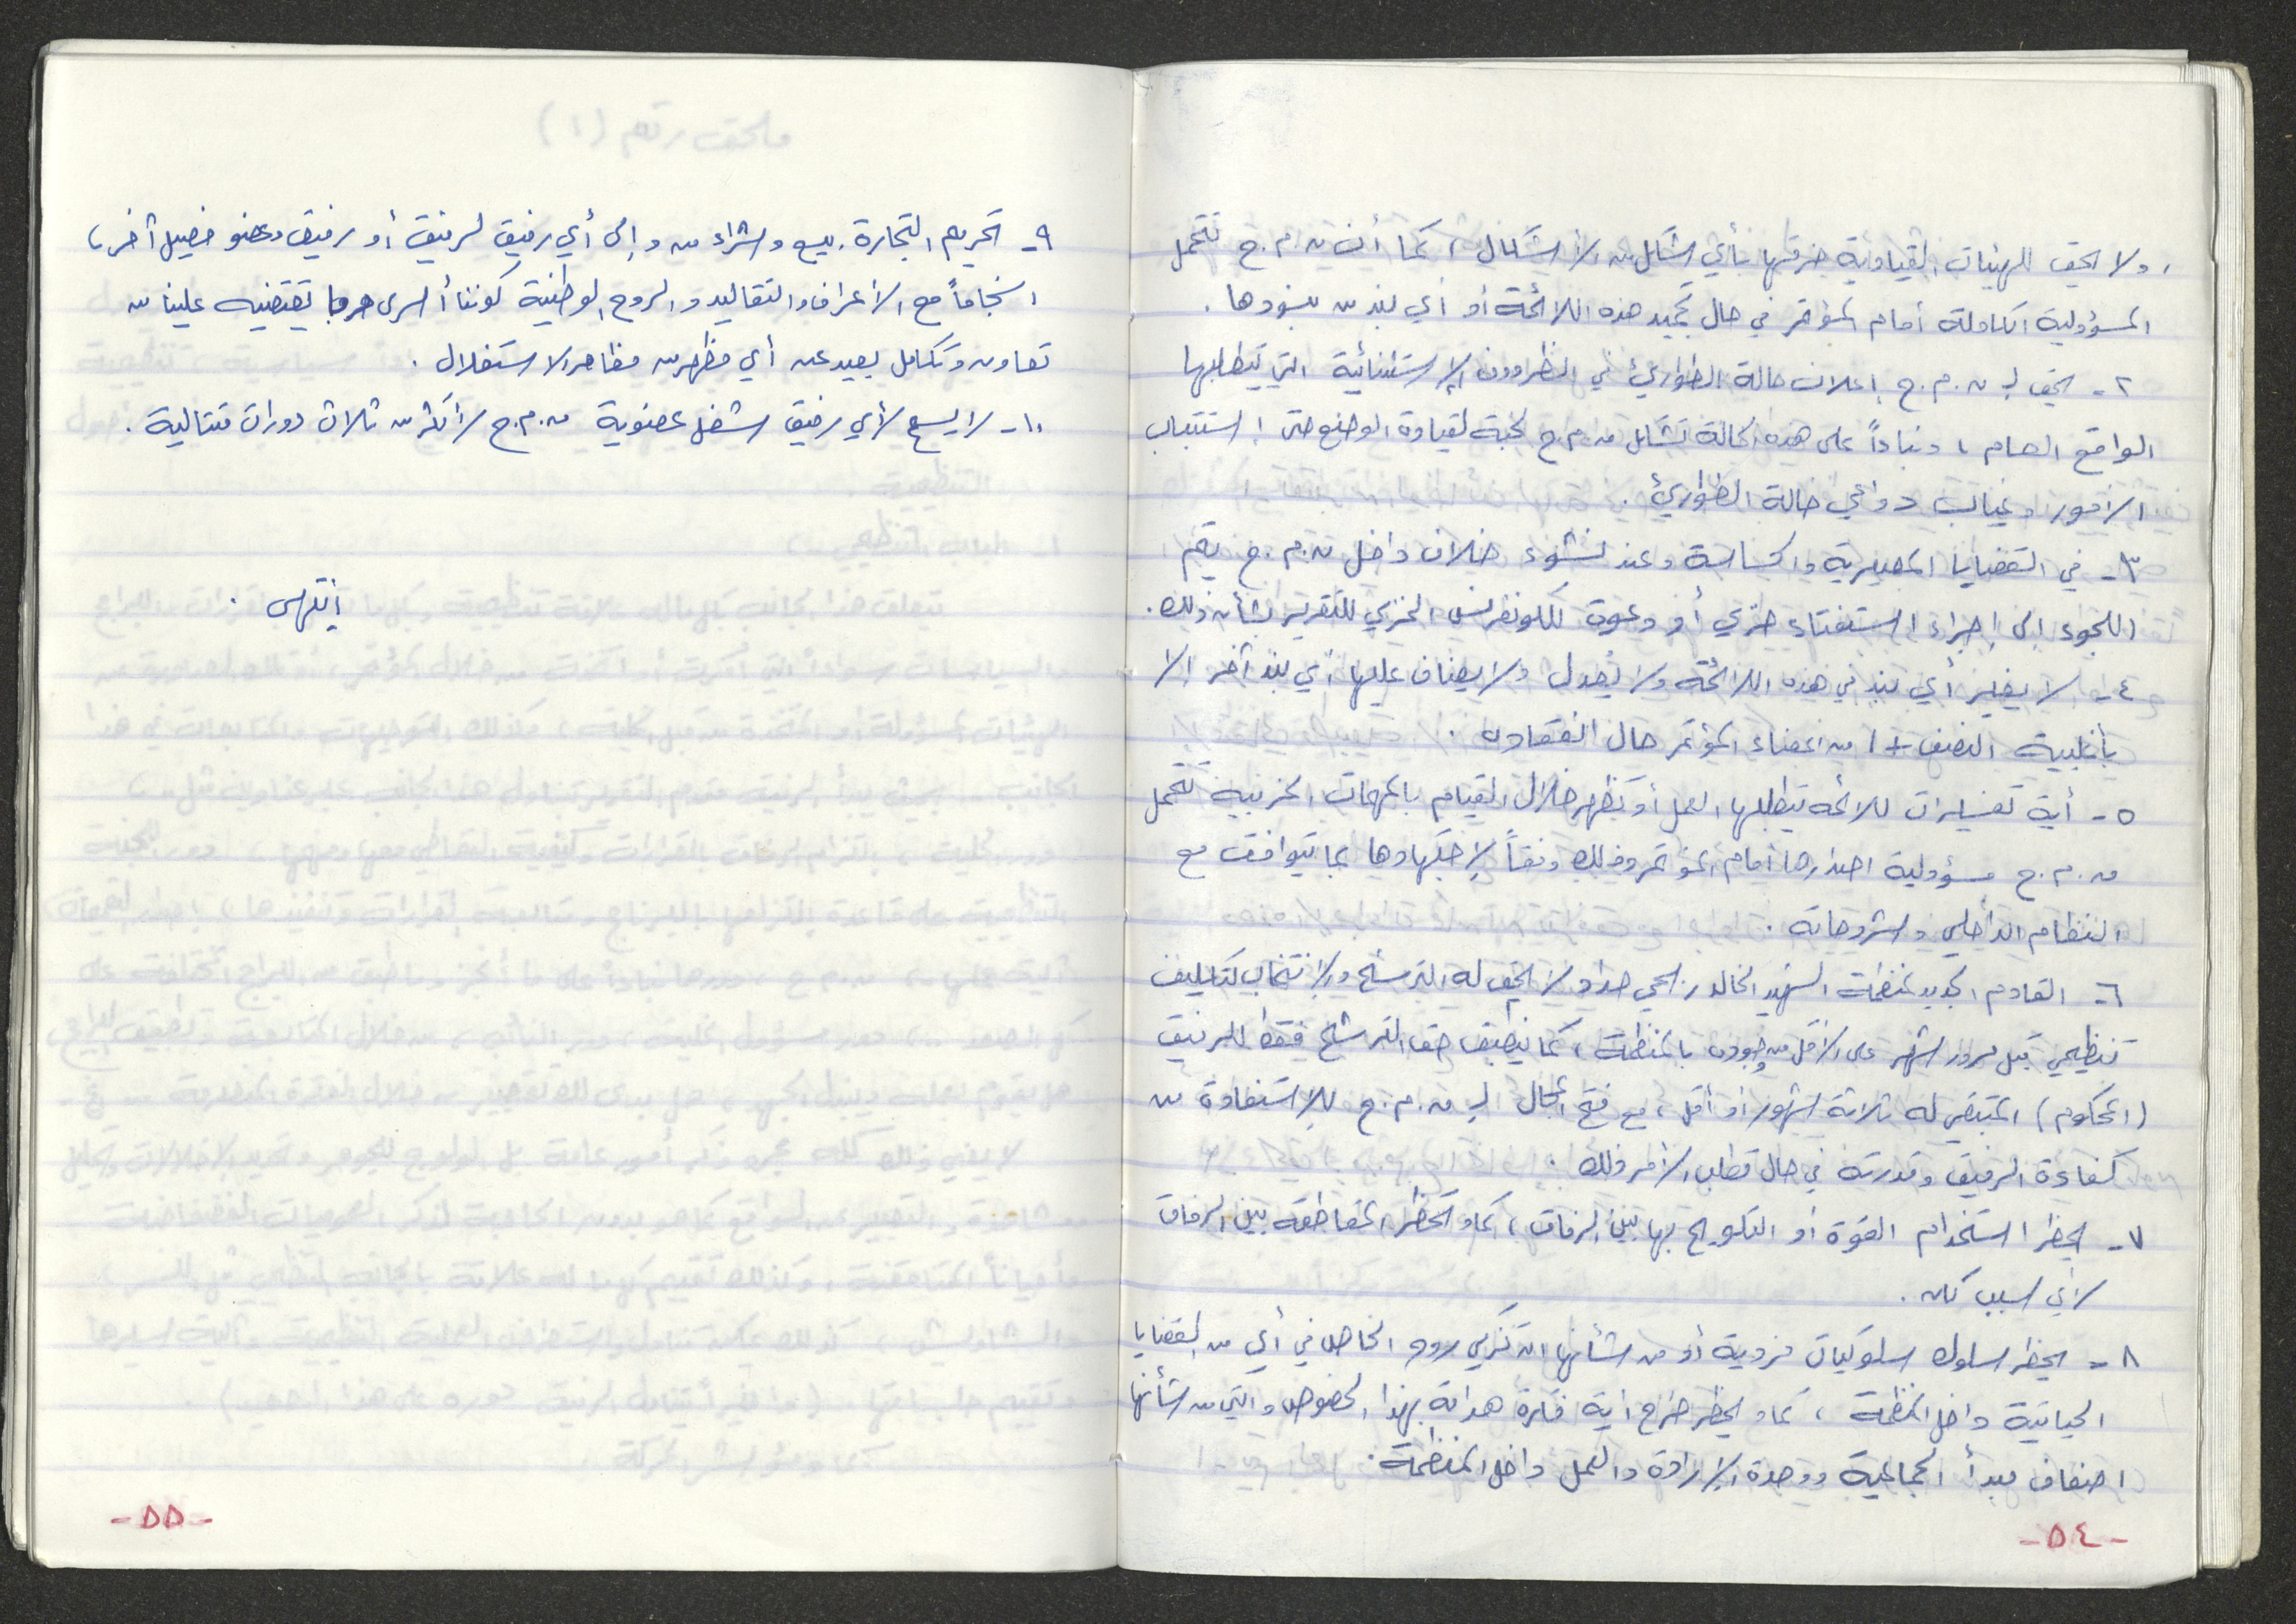 ، ولا يحق للهيئات القيادية خرقها بأي شكل من الأشكال، كما أن م.م.ح تتحمل
المسؤولية الكاملة أمام المؤتمر في حال تجميد هذه اللائحة أو أي بند من بنودها.
٢- يحق لـ م.م.ح إعلان حالة الطوارئ في الظروف الإستثنائية التي يتطلبها
الواقع العام، وبناءاً على هذه الحالة تشكل م.م.ح لجنة لقيادة الوضع حتى إستتباب
الأمور وغياب دواعي حالة الطوارئ.
٣- في القضايا المصيرية والحساسة وعند نشوء خلاف داخل م.م.ح يتم
اللجوء إلى إجراء إستفتاء حزبي أو دعوة للكونفرنس الحزبي للتقرير بشأن ذلك.
٤- لا يغير أي بند في هذه اللائحة ولا يُعدل ولا يضاف عليها أي بند آخر إلا
بأغلبية النصف +١ من أعضاء المؤتمر حال انعقاده.
٥- أية تفسيرات للائحة يتطلبها العمل أو تظهر خلال القيام بالمهمات الحزبية تتحمل
م.م.ح مسؤولية اصدارها أمام المؤتمر وذلك وفقاً لإجتهادها بما يتوافق مع
النظام الداخلي وشروحاته.
٦- القادم الجديد لمنظمة الشهيد الخالد ربحي حداد لا يحق له الترشح والإنتخاب لتكليف
تنظيمي قبل مرور شهر على الأقل من وجوده بالمنظمة، كما ينطبق حق الترشح فقط للرفيق
(المحكوم) المتبقي له ثلاثة شهور أو أقل، مع فتح المجال لـ م.م.ح للإستفادة من
كفاءة الرفيق وقدرته في حال تطلب الأمر ذلك.
٧- يحظر استخدام القوة أو التلويح بها بين الرفاق، كما و يحظر المقاطعة بين الرفاق
لأي سبب كان.
٨- يحظر سلوك سلوكيات فردية أو من شأنها ان تكرس روح الخاص في أي من القضايا
الحياتية داخل المنظمة، كما و يحظر طرح أية فكرة هدامة بهذا الخصوص والتي من شأنها
اضعاف مبدأ الجماعية ووحدة الإرادة والعمل داخل المنظمة.
-٥٤-
٩- تحريم التجارة ببيع وشراء من وإلى أي رفيق لرفيق أو رفيق وعضو فصيل آخر،
انسجاماً مع الأعراف والتقاليد والروح الوطنية كوننا أسرى وما تقتضيه علينا من
تعاون وتكامل بعيد عن أي مظهر من مظاهر الاستغلال.
١٠- لا يسمح لأي رفيق شغل عضوية م.م.ح لأكثر من ثلاث دورات متتالية.
إنتهى.
-٥٥-